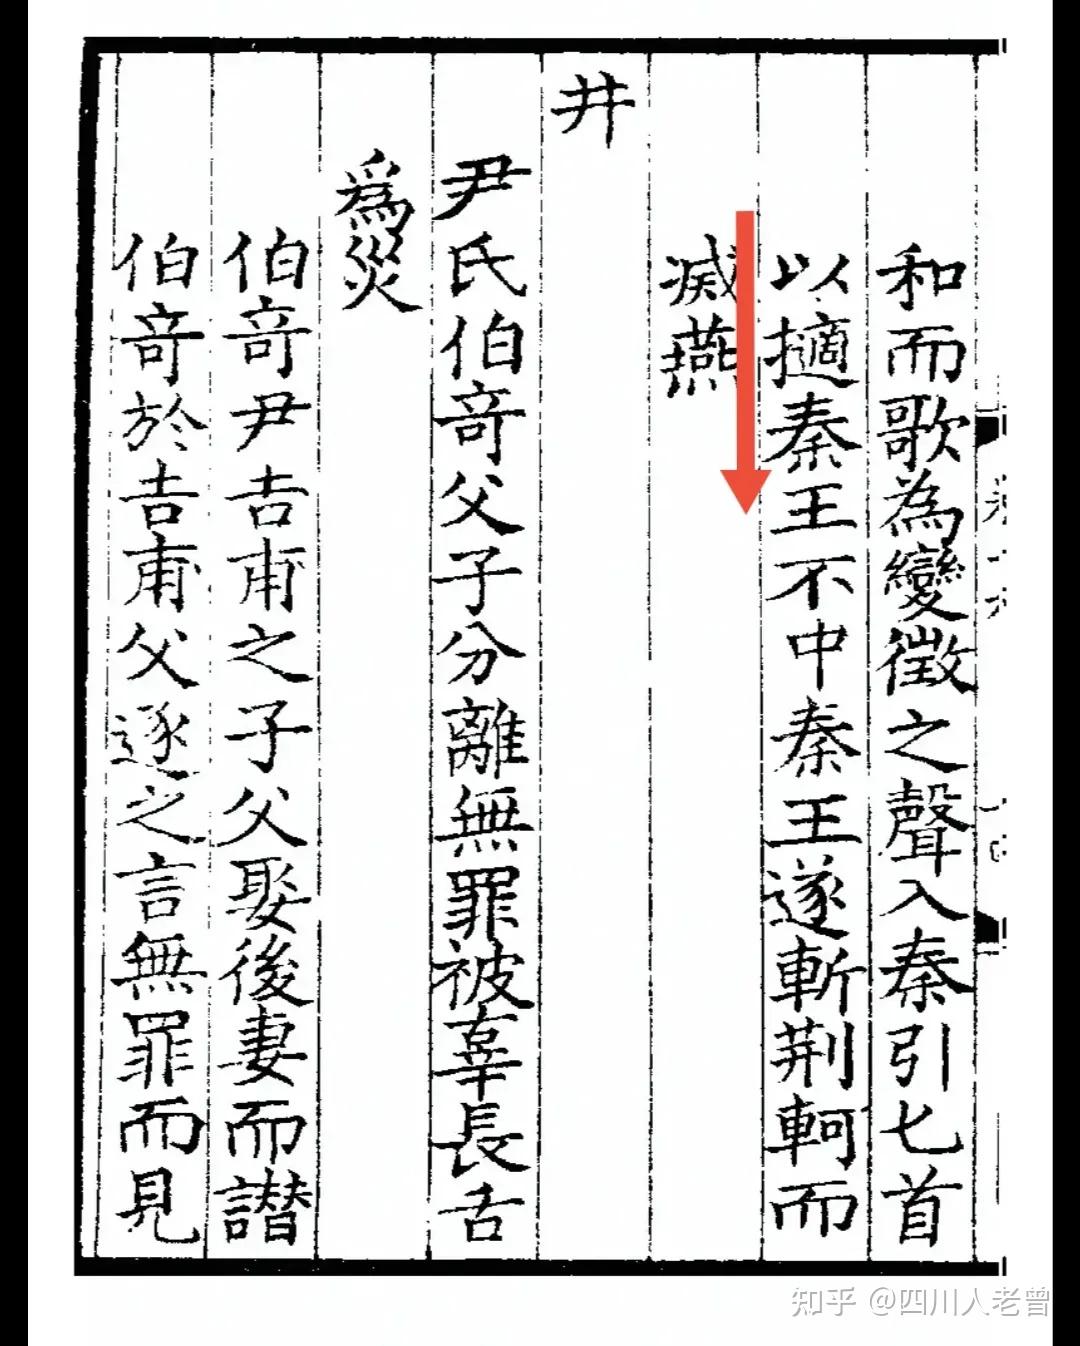 和而歌為變徵之聲入秦引匕首
以擿秦王不中秦王遂斬荆軻而
滅燕
井
尹氏伯竒父子分離無罪被辜長舌
爲災
伯竒尹吉甫之子父娶後妻而譖
伯竒於吉甫父逐之言無罪而見
知乎 @四川人老曾